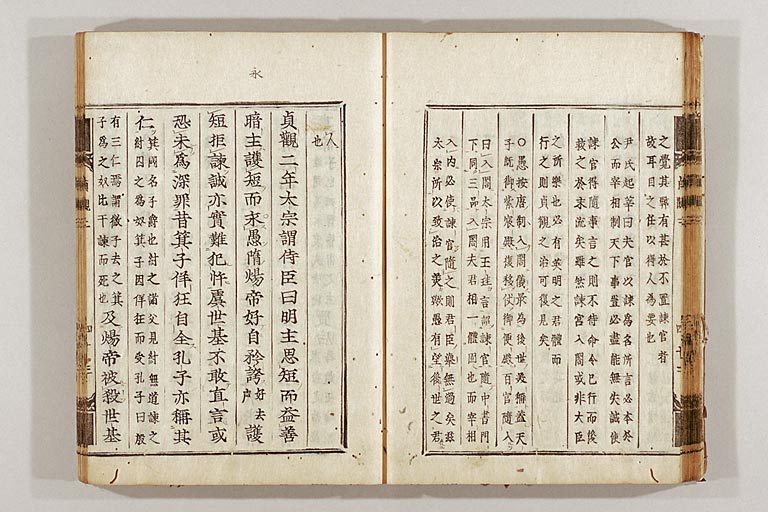 之覺其弊有甚於不置諫官者
故耳目之任以得人為要也
尹氏起莘曰夫官以諫爲名所言必本於
公而宰相制天下事豈必盡能無失誠使
諫官得隨事言之則不待命令已行而後
救之於末流矣雖然諫官入閤或非大臣
之所樂也必有英明之君體而
行之則貞觀之治可復見矣
○愚按唐制入閤儀最為後世美稱蓋天
子託御紫宸殿復移仗御便殿百官隨入
曰入閤太宗用王珪言詔諫官隨中書門
下同三品入閤夫君相一體固也而宰相
入内必使諫官隨之則君臣舉無過矣玆
太宗所以致治之美歟愚有望後世之君
永
人
也
貞觀二年太宗謂侍臣曰明主思短而益善
暗主護短而永愚隋煬帝好自矜誇好去聲護
短拒諫誠亦實難犯忤虞世基不敢直言或
恐未爲深罪昔箕子佯狂自全孔子亦稱其
仁箕國名子爵也紂之諸父見紂無道諫之
紂囚之爲奴箕子因佯狂而受孔子曰殷
有三仁焉謂微子去之箕
子爲之奴比干諫而死也及煬帝被殺世基